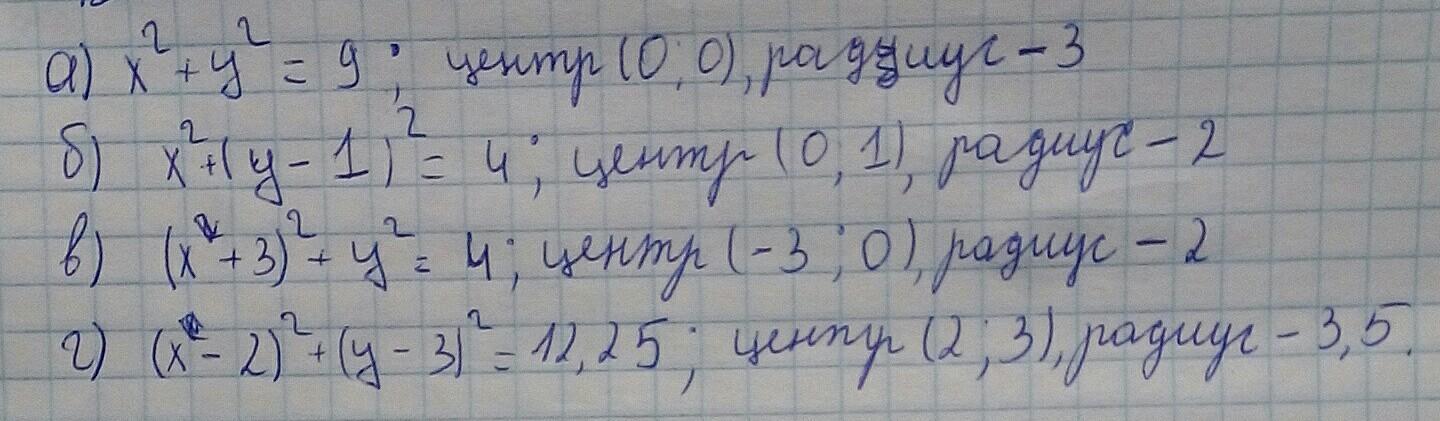 а) x² + y² = 9; центр (0; 0), радиус – 3
б) x² + (y – 1)² = 4; центр (0; 1), радиус – 2
в) (x + 3)² + y² = 4; центр (-3; 0), радиус – 2
г) (x – 2)² + (y – 3)² = 12,25; центр (2; 3), радиус – 3,5.